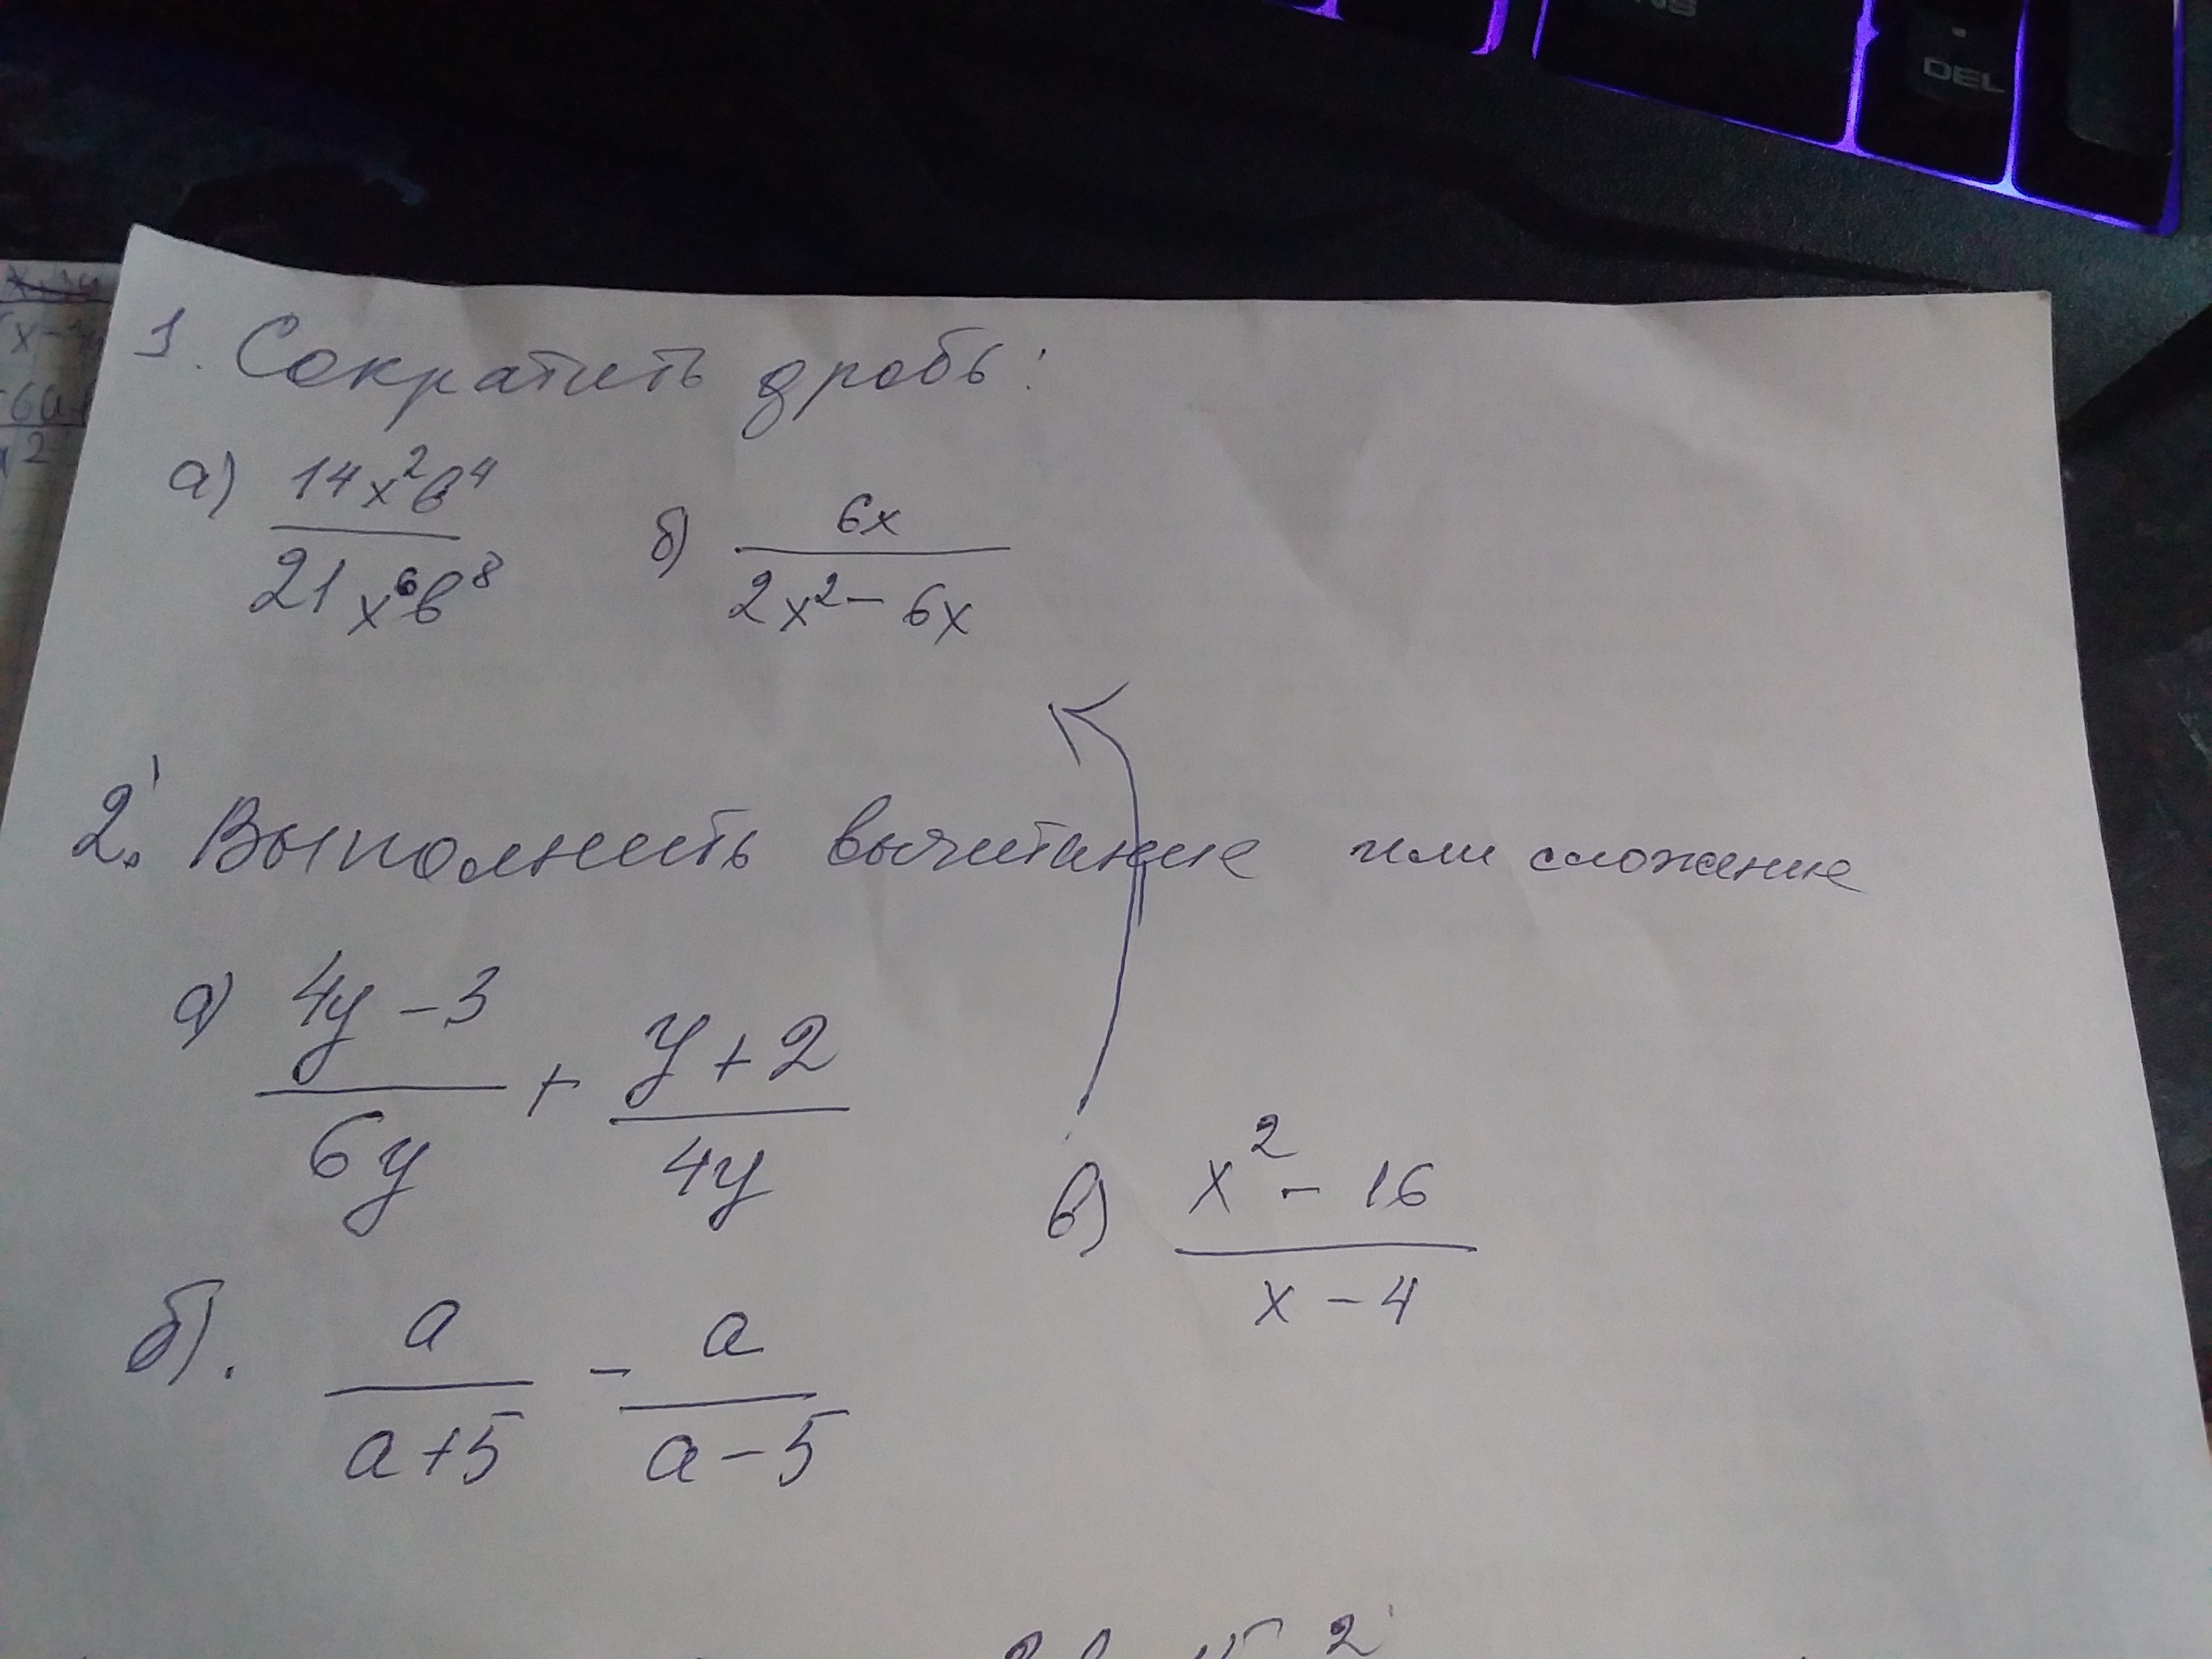 NS
DEL
1. Сократить дробь:
а) 14x²в⁴ / 21x⁶в⁸ б) 6x / 2x² - 6x
2. Выполнить вычитание или сложение
а) 4y - 3 / 6y + y + 2 / 4y
в) x² - 16 / x - 4
б). a / a+5 - a / a-5